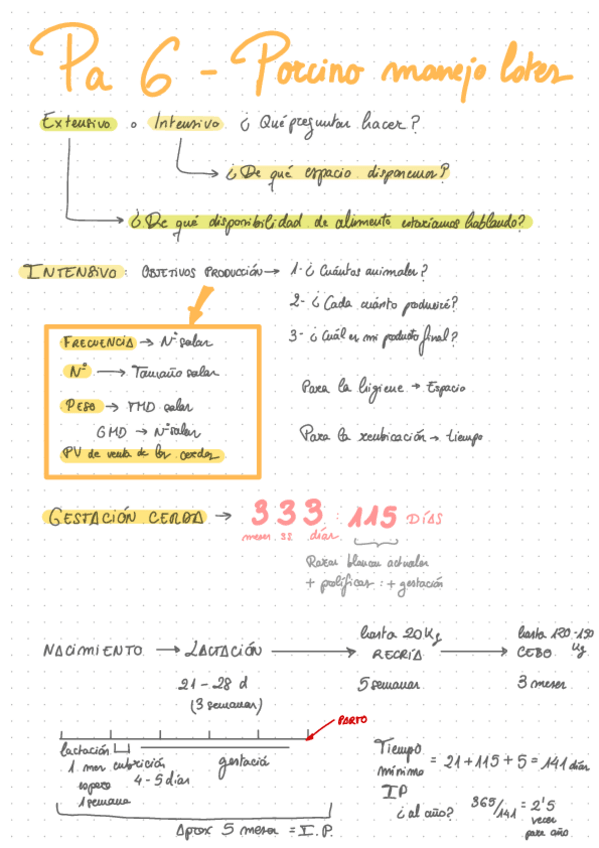 Pa 6 - Porcino manejo lotes
Extensivo o Intensivo ¿Qué preguntar hacer?
¿De qué espacio disponemos?
¿De qué disponibilidad de alimento estaríamos hablando?
INTENSIVO: OBJETIVOS PRODUCCIÓN → 1- ¿Cuántos animales?
2- ¿Cada cuánto produciré?
3- ¿Cuál es mi producto final?
Para la higiene → Espacio
Para la reubicación → tiempo
FRECUENCIA → Nº salas
Nº → Tamaño salas
PESO → TMD salas
GMD → Nº salas
PV de venta de los cerdos
GESTACIÓN CERDA → 333 : 115 DÍAS
meses sem días
Razas blancas actuales
+ prolíficas : + gestación
NACIMIENTO → LACTACIÓN → hasta 20 Kg RECRÍA → hasta 120-150 Kg CEBO
21 - 28 d
(3 semanas)
5 semanas
3 meses
PARTO
lactación
1 mes
1 semana
cubrición
4-5 días
gestació
Aprox 5 meses = I.P.
Tiempo mínimo = 21+115+5 = 141 días
IP
¿al año? 365/141 = 2'5 veces por año